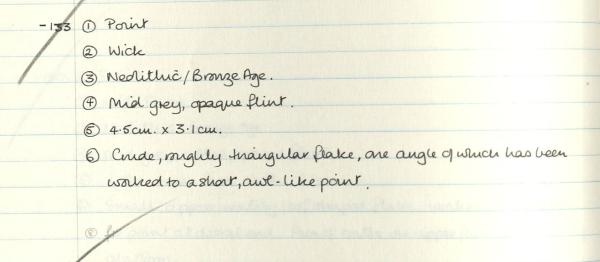 -133 ① Point
② Wick
③ Neolithic/Bronze Age.
④ Mid grey, opaque flint.
⑤ 4.5cm. x 3.1cm.
⑥ Crude, roughly triangular flake, one angle of which has been
worked to a short, awl-like point.